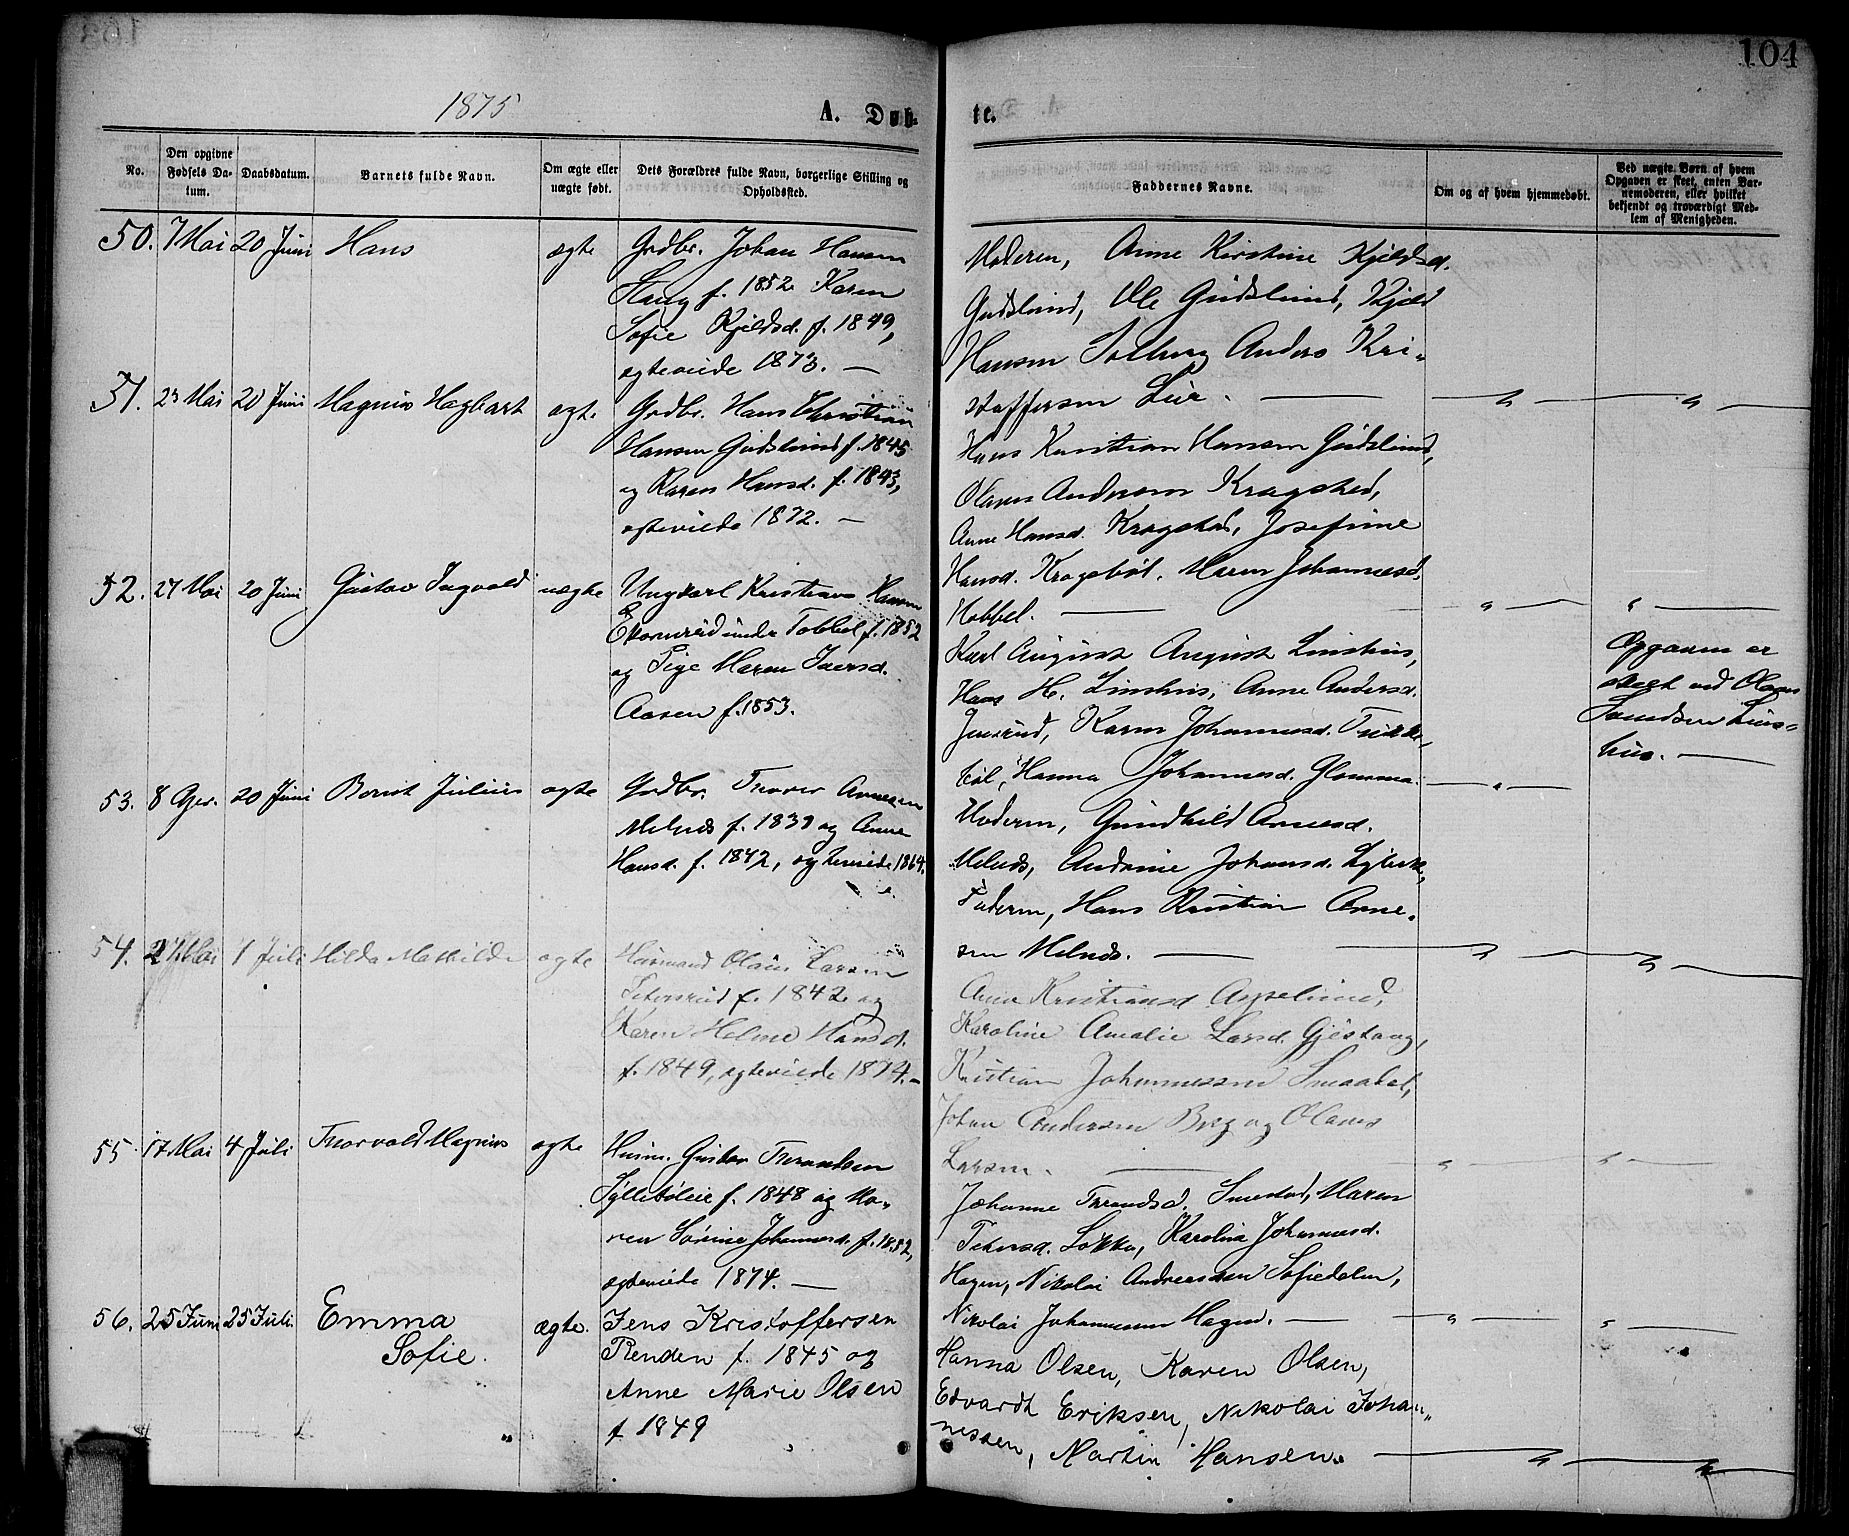 104
1875
A. Døb-
te.
No.
Den opgivne
Fødsels Da-
tum.
Daabsdatum.
Barnets fulde Navn.
Om ægte eller
uægte født.
Dets Forældres fulde Navn, borgerlige Stilling og
Opholdssted.
Faddernes Navne.
Om og af hvem hjemmedøbt.
Ved uægte Børn af hvem
Opgaven er skeet, enten Bar-
nemoderen, eller hvilket
bekjendt og troværdigt Med-
lem af Menigheden.
50. 7 Mai 20 Juni Hans ægte Grdbr. Johan Hansen
Haug f. 1852 Karen
Sofie Kjeldsd. f. 1849,
egteviede 1873. —
Moderen, Anne Kirstine Kjeldsd.
Gudslund, Ole Gudslund, Kjeld
Hansen Solberg Anders Kri-
stoffersen Lier. — " "
51. 23 Mai 20 Juni Magnus Hagbart egte Grdbr. Hans Christian
Hansen Gudslund f. 1845
og Karen Hansd. f. 1843,
egteviede 1872. —
Hans Kristian Hansen Gudslund,
Olaves Andersen Kragsted,
Anne Hansd. Kragsted, Josefine
Hansd. Kragebøl. Maren Johannesd.
Hobbel. — " "
52. 27 Mai 20 Juni Gustav Ingvald uegte Ungkarl Kristian Hansen
Ekornrud under Tobbel f. 1852
og Pige Maren Iversd.
Aasen f. 1853.
Karl August August Linshus,
Hans H. Linshus, Anne Andersd.
Jensrud, Karen Johannesd. Trikke-
bøl, Hanna Johannesd. Glomma. — " —
Opgaven er
skeet ved Olaus
Linds-
hus. —
53. 8 Apr. 20 Juni Bernt Julius egte Grdbr. Thorer Arnesen
Melnes f. 1839 og Anne
Hansd. f. 1842, egteviede 1864.
Moderen, Gundhild Arnesd.
Melnes, Andrine Johansd.
Faderen, Hans Kristian Arne-
sen Melnes. — " "
54. 27 Mai 4 Juli Hilda Mathilde egte Husmand Olaus Larsen
Petersrud f. 1842 og
Karen Helene Hansd.
f. 1849, egteviede 1874. —
Anne Kristiansd Aspelund,
Karoline Amalie Larsd. Gjestang,
Kristian Johannessen Smaabøl,
Johan Andersen Berg og Olaves
Larsen. — " "
55 17 Mai 4 Juli Thorvald Magnus egte Husm. Gustav Throndsen
Syllebøleie f. 1848 og Ma-
ren Sørine Johannesd. f. 1852,
egteviede 1874. —
Johanne Throndsd. Smestad, Maren
Petersd. Løkka, Karoline Johannesd.
Hagen, Nikolai Andreassen Sofiedalen,
Nikolai Johannesen Hagen. — " "
56. 25 Juni 25 Juli. Emma
Sofie. ægte. Jens Kristoffersen
Renden f. 1845 og
Anne Marie Olsen
f 1849
Hanna Olsen, Karen Olsen,
Edvardt Eriksen, Nikolai Johan-
nessen, Martin Hansen. — " "